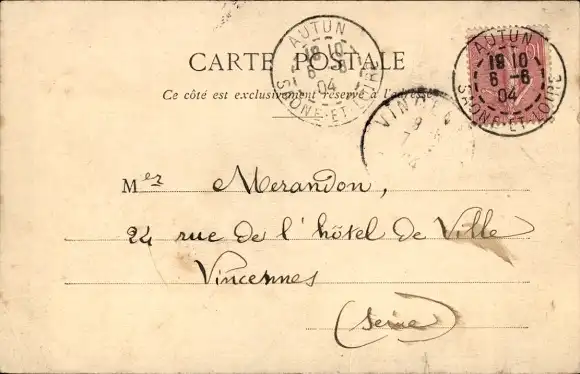 CARTE POSTALE
Ce côté est exclusivement réservé à l'adresse
AUTUN
18 10
6 -6
04
SAÔNE-ET-LOIRE
AUTUN
18 10
6 -6
04
SAÔNE-ET-LOIRE
Mer Merandon,
24 rue de l'hôtel de Ville
Vincennes
(Seine)